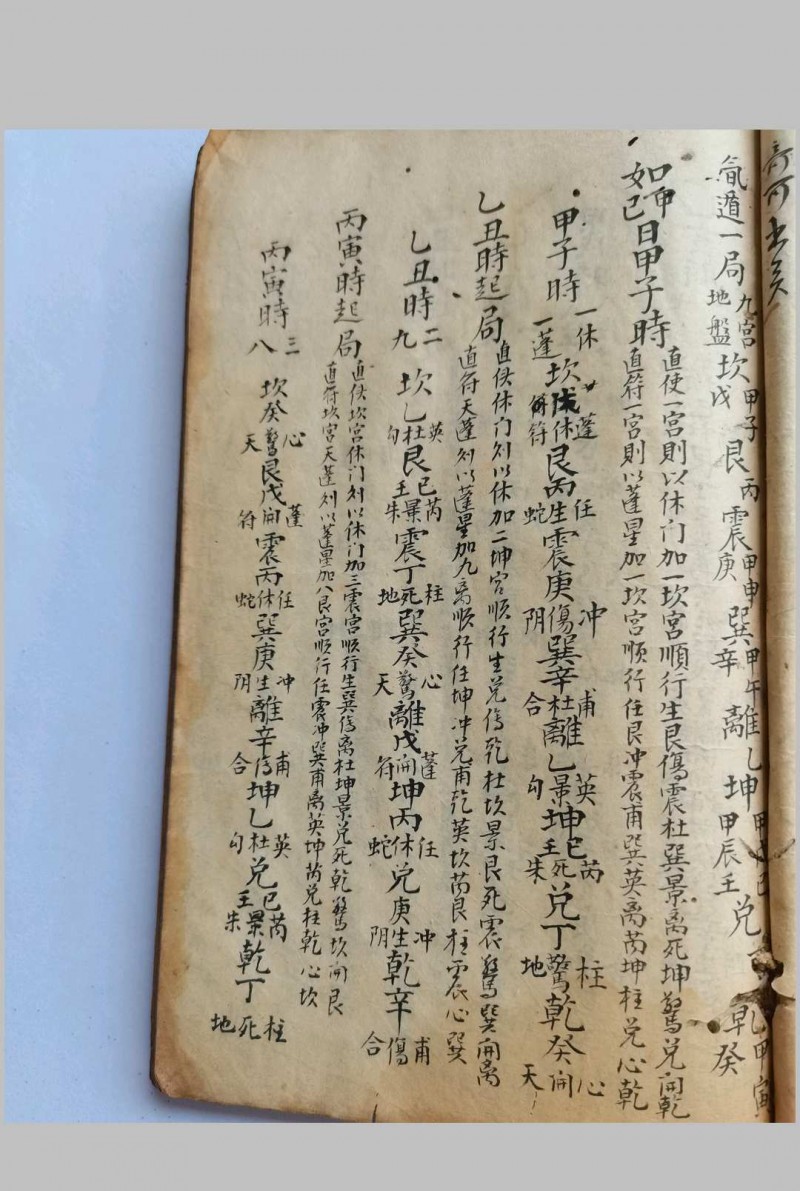 氣遁一局 九宮地盤 坎 甲子戊 艮 丙 震 甲申庚 巽 甲午辛 離 乙 坤 甲辰壬 兌 乾 甲寅癸
如甲己日甲子時 直使一宮則以休门加一坎宮順行生艮傷震杜巽景离死坤驚兌開乾
直符一宮則以蓬星加一坎宮順行任艮冲震甫巽英离芮坤柱兌心乾
甲子時 一休一蓬 坎戊 蓬休符 艮丙 任生蛇 震庚 冲傷阴 巽辛 甫杜合 離乙 英景勾 坤己壬 芮死朱 兌丁 柱驚地 乾癸 心開天
乙丑時起局 直使休门则以休加二坤宮順行生兌傷乾杜坎景艮死震驚巽開离
直符天蓬则以蓬星加九离順行任坤冲兌甫乾英坎芮艮柱震心巽
乙丑時 二九 坎乙 英杜勾 艮己壬 芮景朱 震丁 柱死地 巽癸 心驚天 離戊 蓬開符 坤丙 任休蛇 兌庚 冲生阴 乾辛 甫傷合
丙寅時起局 直使坎宮休门则以休门加三震宮順行生巽傷离杜坤景兌死乾驚坎開艮
直符坎宮天蓬则以蓬星加八艮宮順行任震冲巽甫离英坤芮兌柱乾心坎
丙寅時 三八 坎癸 心驚天 艮戊 蓬開符 震丙 任休蛇 巽庚 冲生阴 離辛 甫傷合 坤乙 英杜勾 兌己壬 芮景朱 乾丁 柱死地